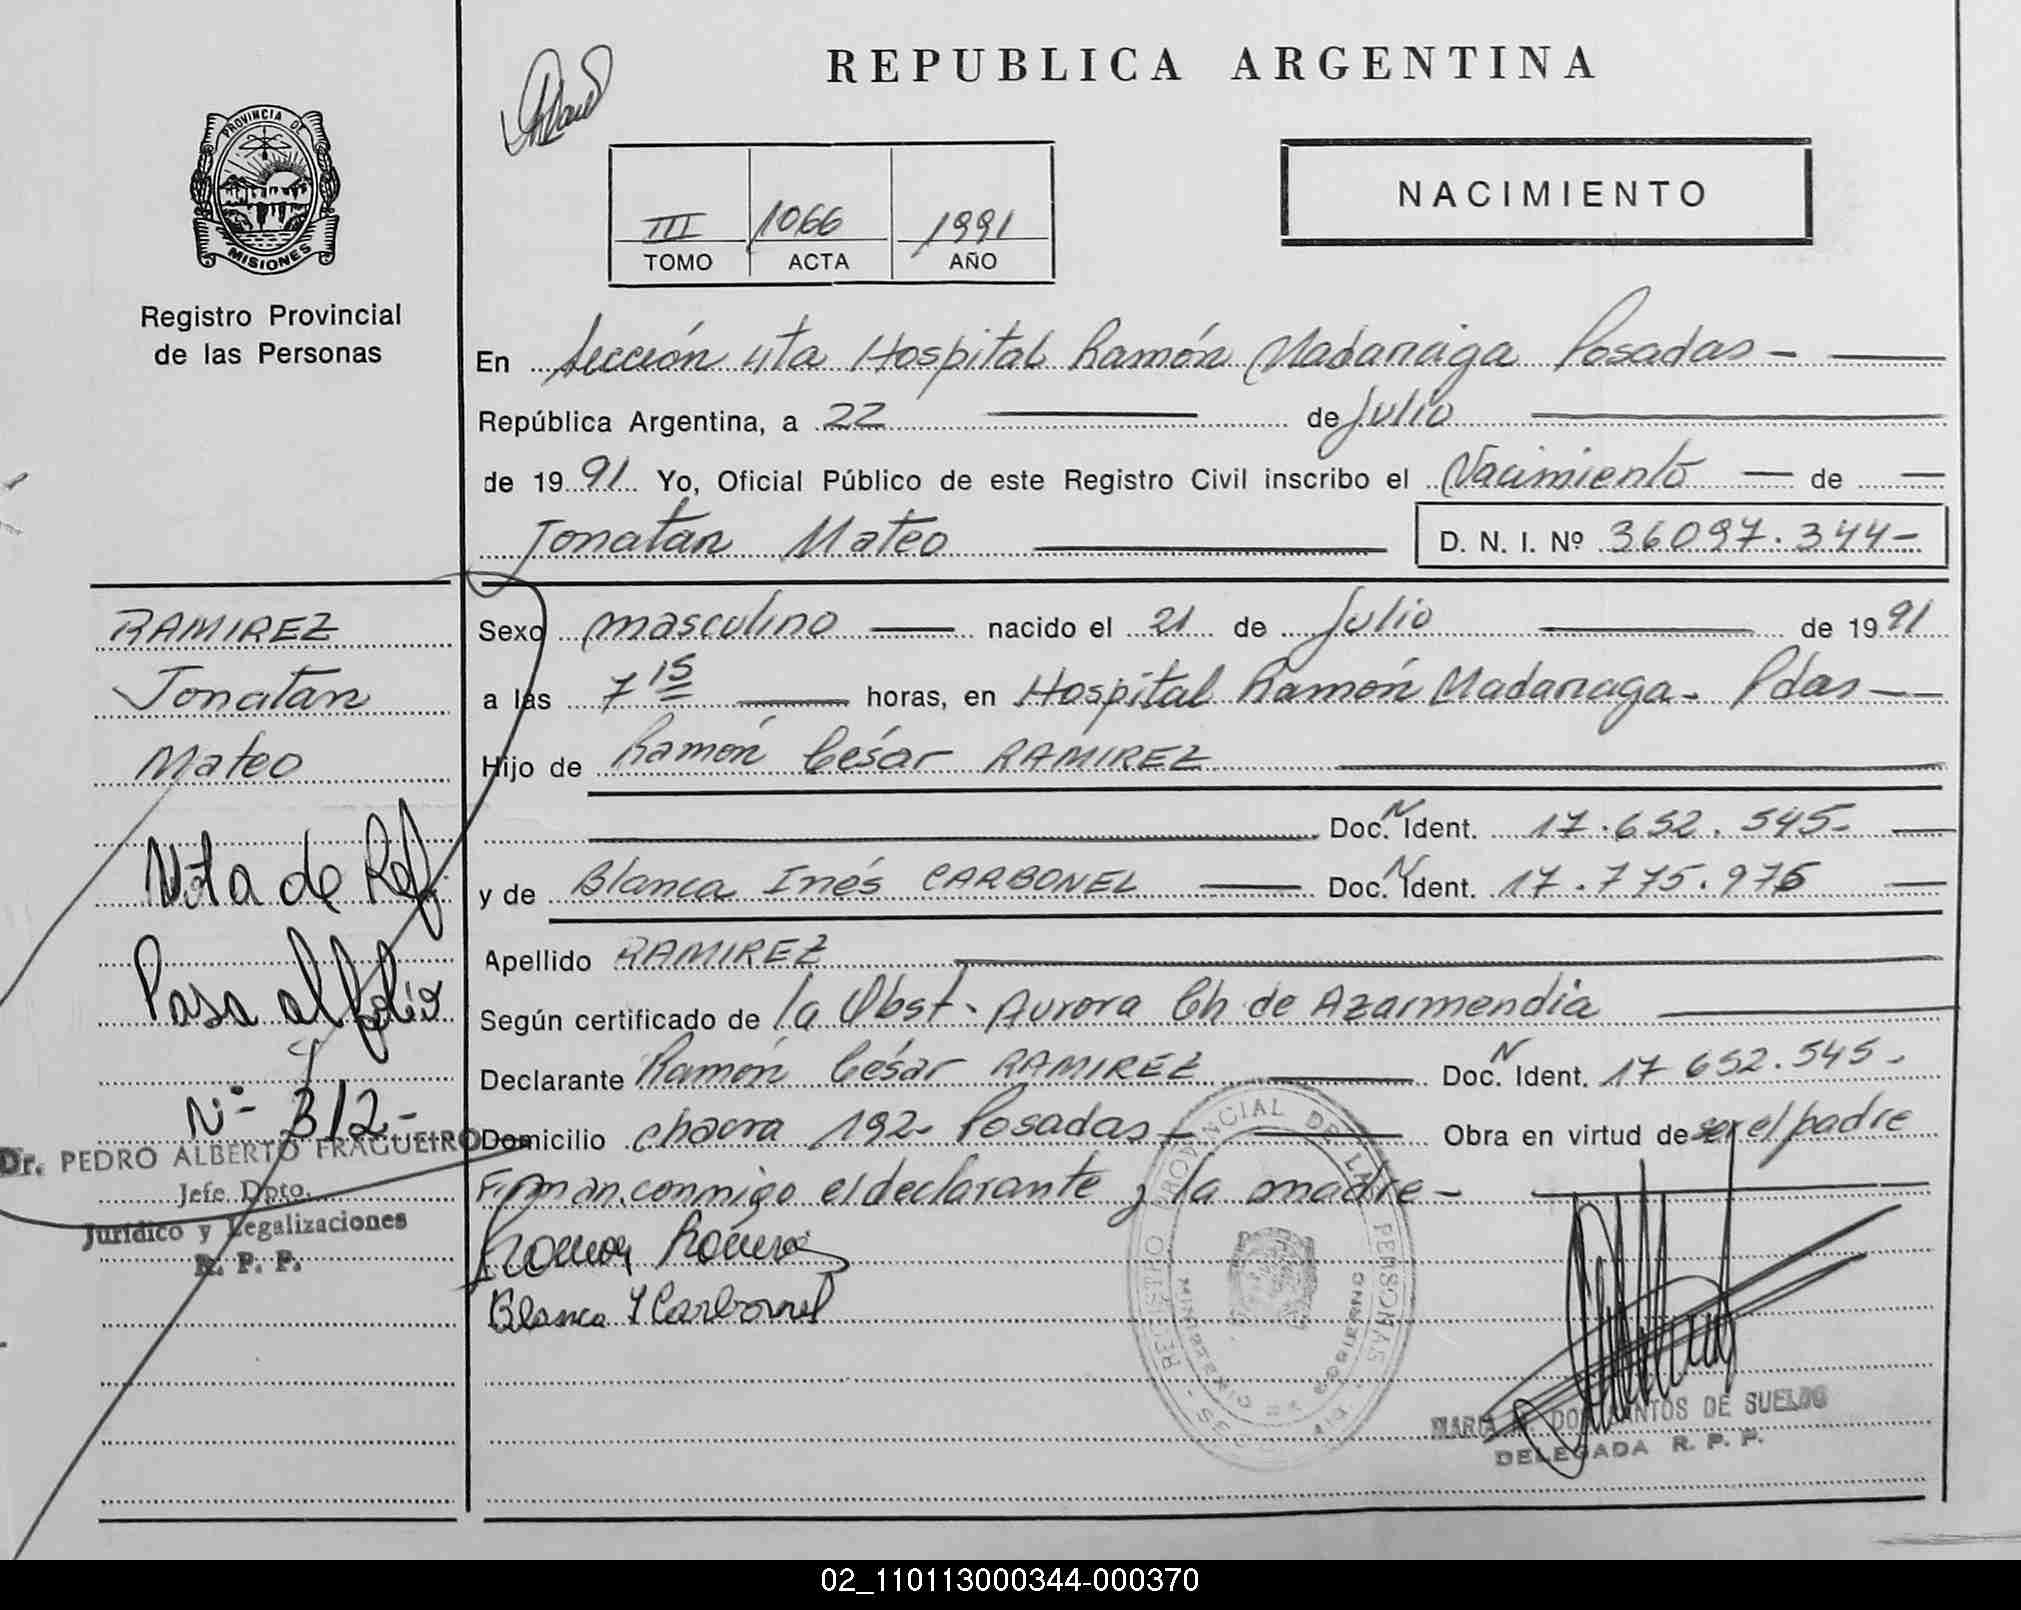 REPUBLICA ARGENTINA
PROVINCIA DE
MISIONES
Registro Provincial
de las Personas
III 1066 1991
TOMO ACTA AÑO
NACIMIENTO
En Sección 4ta Hospital Ramón Madariaga Posadas -
República Argentina, a 22 de Julio
de 1991 Yo, Oficial Público de este Registro Civil inscribo el Nacimiento de
Jonatan Mateo D. N. I. Nº 36097.344-
RAMIREZ
Jonatan
Mateo
Nota de Ref.
Pasa al folio
Nº 312-
Dr. PEDRO ALBERTO FRAGUEIRO
Jefe Dpto.
Jurídico y Legalizaciones
R. P. P.
Sexo masculino nacido el 21 de Julio de 1991
a las 7 15 horas, en Hospital Ramón Madariaga - Pdas -
Hijo de Ramón César RAMIREZ
Doc. N Ident. 17.652.545-
y de Blanca Inés CARBONEL Doc. N Ident. 17.775.976
Apellido RAMIREZ
Según certificado de la Obst. Aurora Ch de Azarmendia
Declarante Ramón César RAMIREZ Doc. N Ident. 17 652.545-
Domicilio chacra 192- Posadas - Obra en virtud de ser el padre
Firman conmigo el declarante y la madre -
Blanca I Carbonel
REGISTRO PROVINCIAL DE LAS PERSONAS
MINISTERIO DE GOBIERNO
DE SUELDO
DELEGADA R. P. P.
02_110113000344-000370